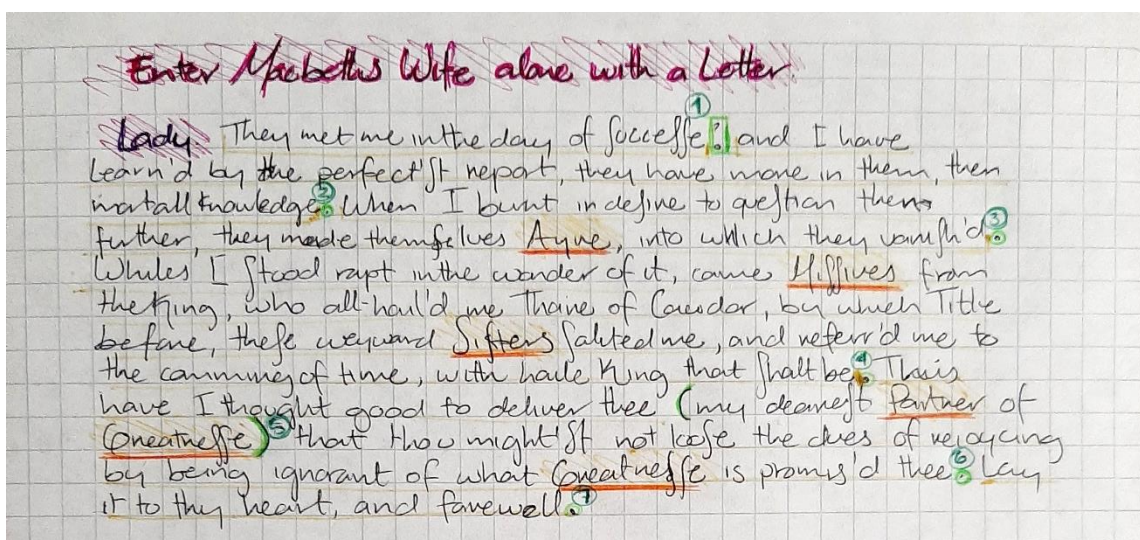 Enter Macbeths Wife alone with a Letter.
①
Lady. They met me in the day of ſucceſſe: and I have
learn'd by the perfect'ſt report, they have more in them, then
②
mortall knowledge. When I burnt in deſire to queſtion them
③
further, they made themſelves Ayre, into which they vaniſh'd.
Whiles I ſtood rapt in the wonder of it, came Miſſives from
the King, who all-hail'd me Thane of Cawdor, by which Title
before, theſe weyward Siſters ſaluted me, and referr'd me to
④
the comming of time, with haile King that ſhalt be. This
have I thought good to deliver thee (my deareſt Partner of
⑤
Greatneſſe) that thou might'ſt not looſe the dues of rejoycing
⑥
by being ignorant of what Greatneſſe is promis'd thee. Lay
⑦
it to thy heart, and farewell.